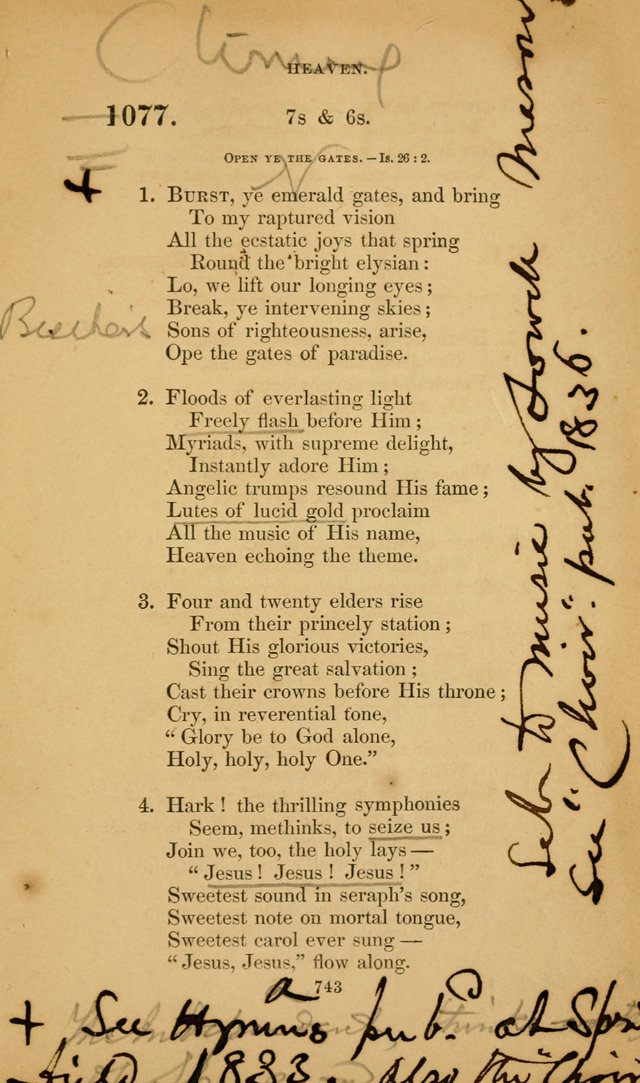 HEAVEN.
1077. 7s & 6s.
OPEN YE THE GATES. — Is. 26 : 2.
+
1. BURST, ye emerald gates, and bring
To my raptured vision
All the ecstatic joys that spring
Round the bright elysian :
Lo, we lift our longing eyes ;
Break, ye intervening skies ;
Beecher's
Sons of righteousness, arise,
Ope the gates of paradise.
2. Floods of everlasting light
Freely flash before Him ;
Myriads, with supreme delight,
Instantly adore Him ;
Angelic trumps resound His fame ;
Lutes of lucid gold proclaim
All the music of His name,
Heaven echoing the theme.
3. Four and twenty elders rise
From their princely station ;
Shout His glorious victories,
Sing the great salvation ;
Cast their crowns before His throne ;
Cry, in reverential tone,
“ Glory be to God alone,
Holy, holy, holy One.”
4. Hark ! the thrilling symphonies
Seem, methinks, to seize us ;
Join we, too, the holy lays —
“ Jesus ! Jesus ! Jesus ! ”
Sweetest sound in seraph's song,
Sweetest note on mortal tongue,
Sweetest carol ever sung —
“ Jesus, Jesus,” flow along.
743
Set to music by Lowell Mason
See "Choir" pub. 1836.
+ See a Hymns pub.d at Spri
field 1833. Also the "Choir